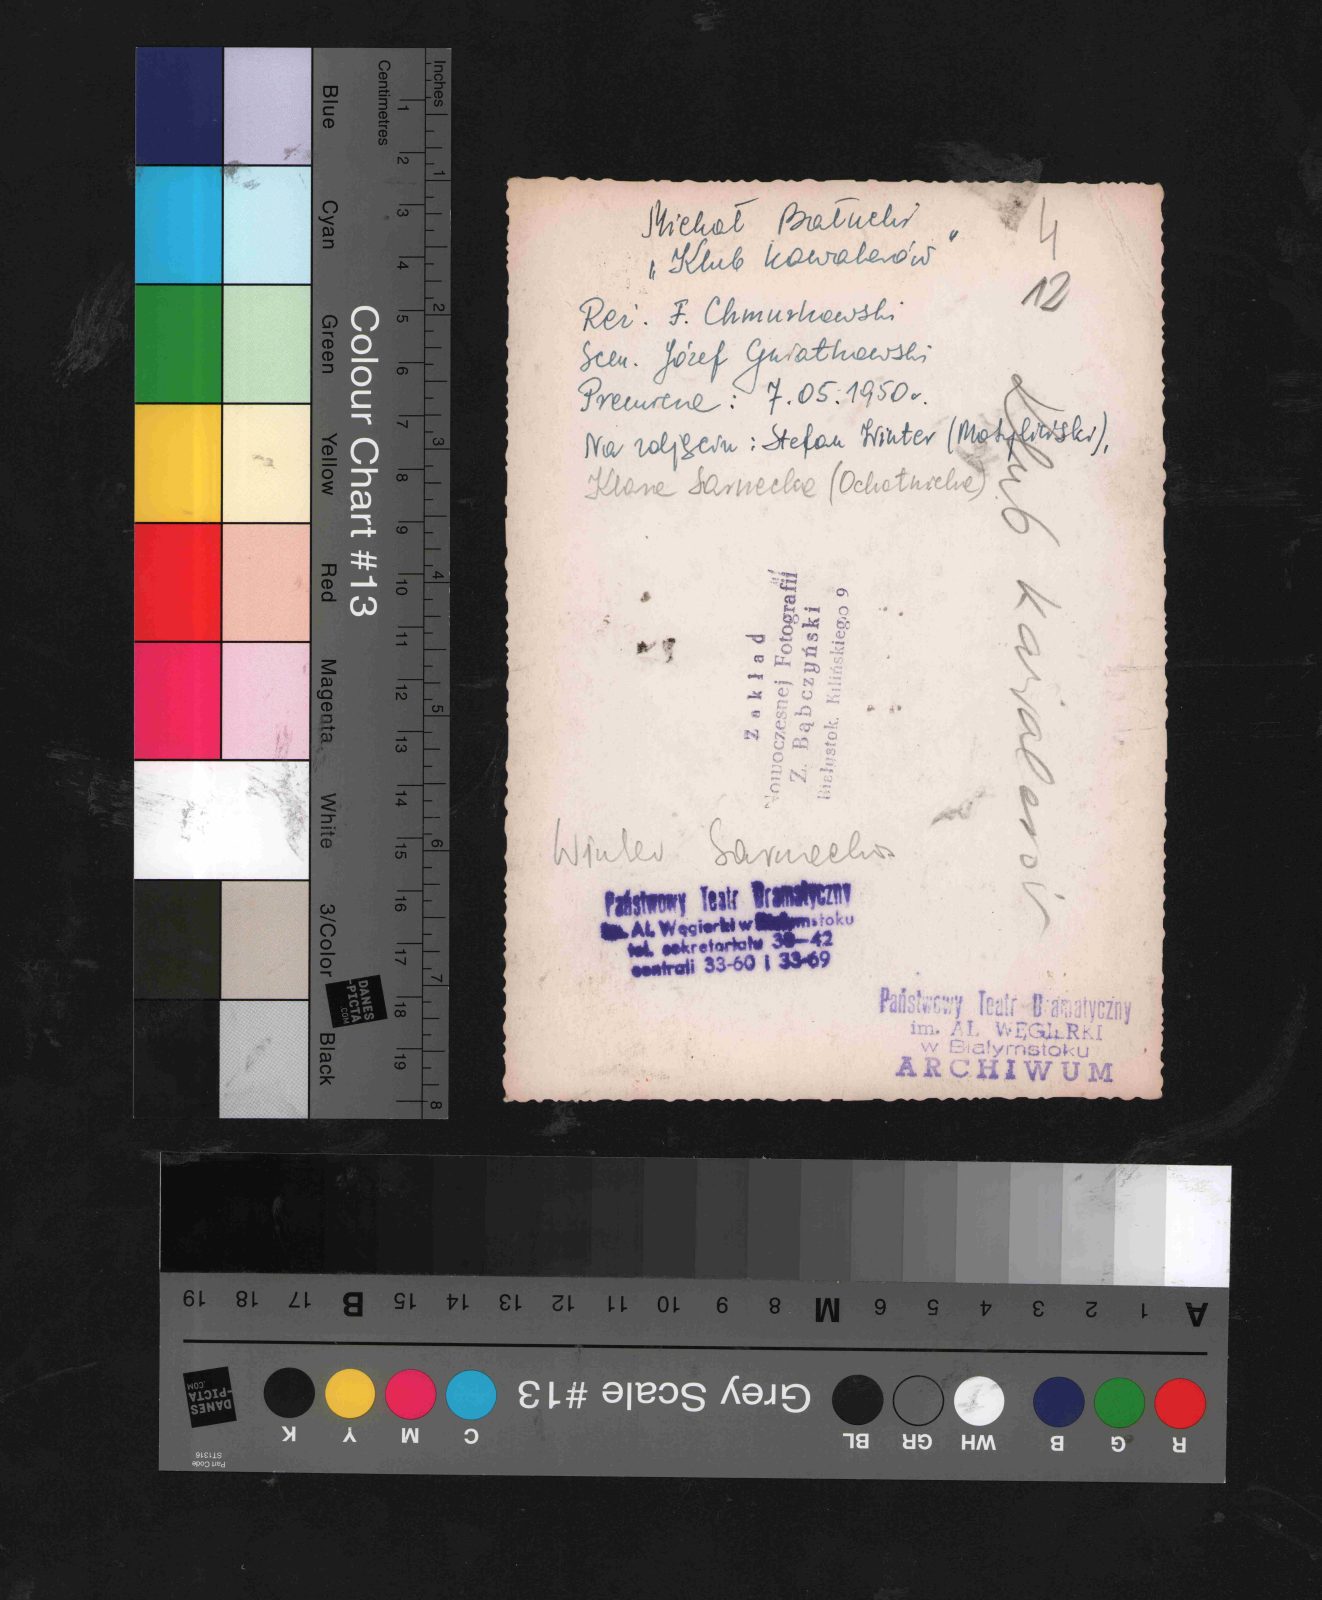 Michał Bałucki
„Klub kawalerów"
Reż. F. Chmurkowski
Scen. Józef Gwiatkowski
Premiera: 7.05.1950r.
Na zdjęciu: Stefan Winter (Motyliński),
Klara Sarnecka (Ochotnicka)
4
12
Klub kawalerów
Zakład
Nowoczesnej Fotografii
Z. Bąbczyński
Białystok, Kilińskiego 9
Winter Sarnecka
Państwowy Teatr Dramatyczny
im. Al. Węgierki w Białymstoku
tel. sekretariatu 38-42
centrali 33-60 i 33-69
Państwowy Teatr Dramatyczny
im. AL. WĘGIERKI
w Białymstoku
ARCHIWUM
Colour Chart #13
Blue
Cyan
Green
Yellow
Red
Magenta
White
3/Color
Black
Centimetres
1 2 3 4 5 6 7 8 9 10 11 12 13 14 15 16 17 18 19
Inches
1 2 3 4 5 6 7 8
DANES
-PICTA
.COM
Grey Scale #13
A 1 2 3 4 5 6 M 8 9 10 11 12 13 14 15 B 17 18 19
R G B WH GR BL C M Y K
DANES
-PICTA
.COM
Part Code
ST1316